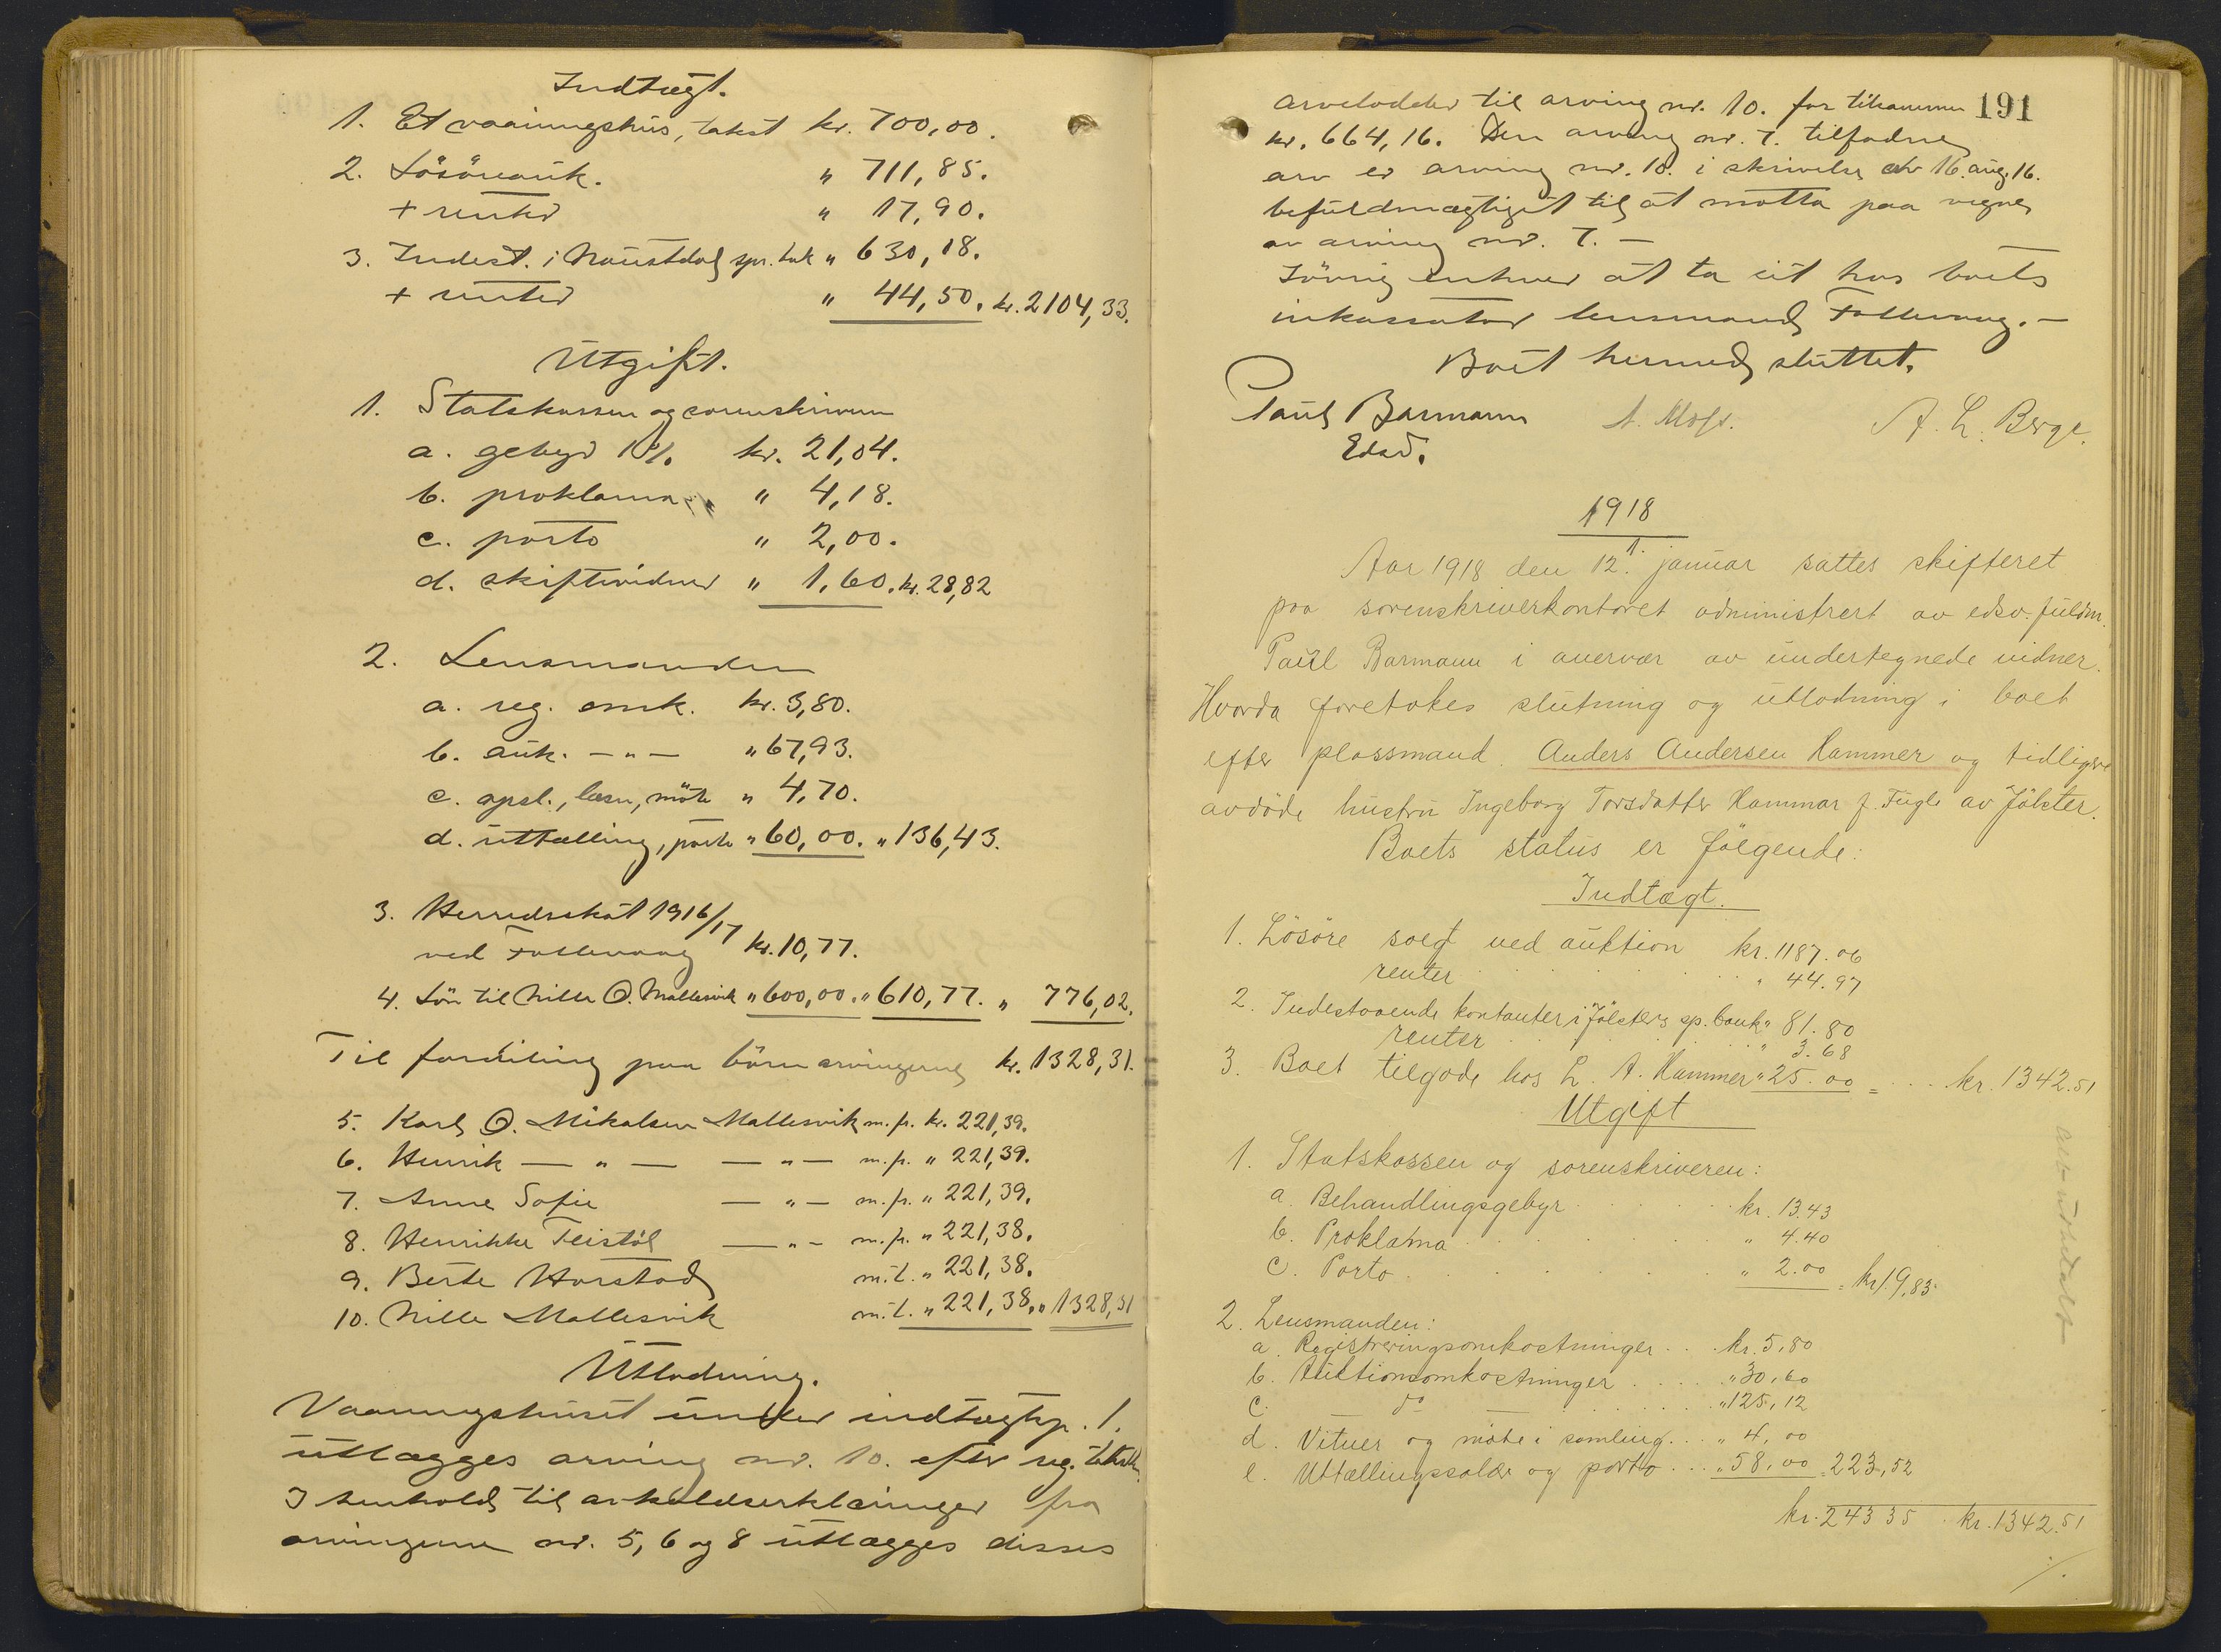 Indtægt.
1. Et vaaningshus, takst kr. 700,00.
2. Lösöreauk. " 711,85.
+ renter " 17,90.
3. Indest. i Naustdal spr.bk " 630,18.
+ renter " 44,50. kr. 2104,33.
Utgift.
1. Statskassen og sorenskriveren
a. gebyr 1% kr. 21,04.
b. proklama " 4,18.
c. porto " 2,00.
d. skiftevidner " 1,60. kr. 28,82
2. Lensmanden
a. reg. omk. kr. 3,80.
b. auk. — " — " 67,93.
c. opsl., læsn, möte " 4,70.
d. uttælling, porto " 60,00. " 136,43.
3. Herredsskat 1916/17
ved Follevaag kr. 10,77.
4. Lön til Nille O. Mallesvik " 600,00. " 610,77. " 776,02.
Til fordeling paa börnearvingerne kr. 1328,31.
5. Karl O. Mikalsen Mallesvik m.fr. kr. 221,39.
6. Henrik — " — — " — m.fr. " 221,39.
7. Anne Sofie — " — m.fr. " 221,39.
8. Henrikke Teistöl — " — m.fr. " 221,38.
9. Berte Horstad m.t. " 221,38.
10. Nille Mallesvik m.t. " 221,38. " 1328,31
Utlodning.
Vaaningshuset under indtægtsp. 1.
utlægges arving nr. 10. efter reg.
I henhold til avkaldserklæringer fra
arvingerne nr. 5, 6 og 8 utlægges disses
191
arvelodder til arving nr. 10. for tilsammen
kr. 664,16. Den arving nr. 7. tilfaldne
arv er arving nr. 10. i skrivelse av 16. aug. 16.
befuldmægtiget til at motta paa vegne
av arving nr. 7. —
Iövrig enhver at ta ut hos boets
inkassator lensmand Follevaag. —
Boet hermed sluttet.
Paul Barmann A. Moss. A. L. Berge.
Edsv.
1918
Aar 1918 den 12. januar sattes skifteret
paa sorenskriverkontoret administrert av edsv. fuldm.
Paul Barmann i overvær av undertegnede vidner.
Hvorda foretokes slutning og utlodning i boet
efter plassmand. Anders Andersen Hammer og tidligere
avdöde hustru Ingeborg Torsdatter Hammar f. Fugle av Jölster.
Boets status er fölgende:
Indtægt.
1. Lösöre solgt ved auktion kr. 1187.06
renter " 44.97
2. Indestaaende kontanter i Jölsters sp. bank " 81.80
renter " 3.68
3. Boet tilgode hos L. A. Hammer " 25.00 = kr. 1342.51
Utgift
1. Statskassen og sorenskriveren:
a. Behandlingsgebyr kr. 13.43
b. Proklama " 4.40
c. Porto " 2.00 = kr 19,83
2. Lensmanden:
a. Registreringsomkostninger kr. 5,80
b. Auktionsomkostninger " 30,60
c. do — " 125,12
d. Vitner og möte i samling " 4,00
e. Uttællingssalær og porto " 58,00 = 223,52
kr. 243 35 kr. 1342.51
./.
Alt utbetalt